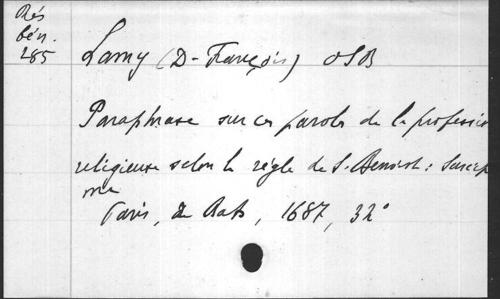 Rés
bén.
285
Lamy (D. François) OSB
Paraphrase sur ces paroles de la professio
religieuse selon la règle de S. Benoist : Suscip
me
Paris, de Bats, 1687, 32°